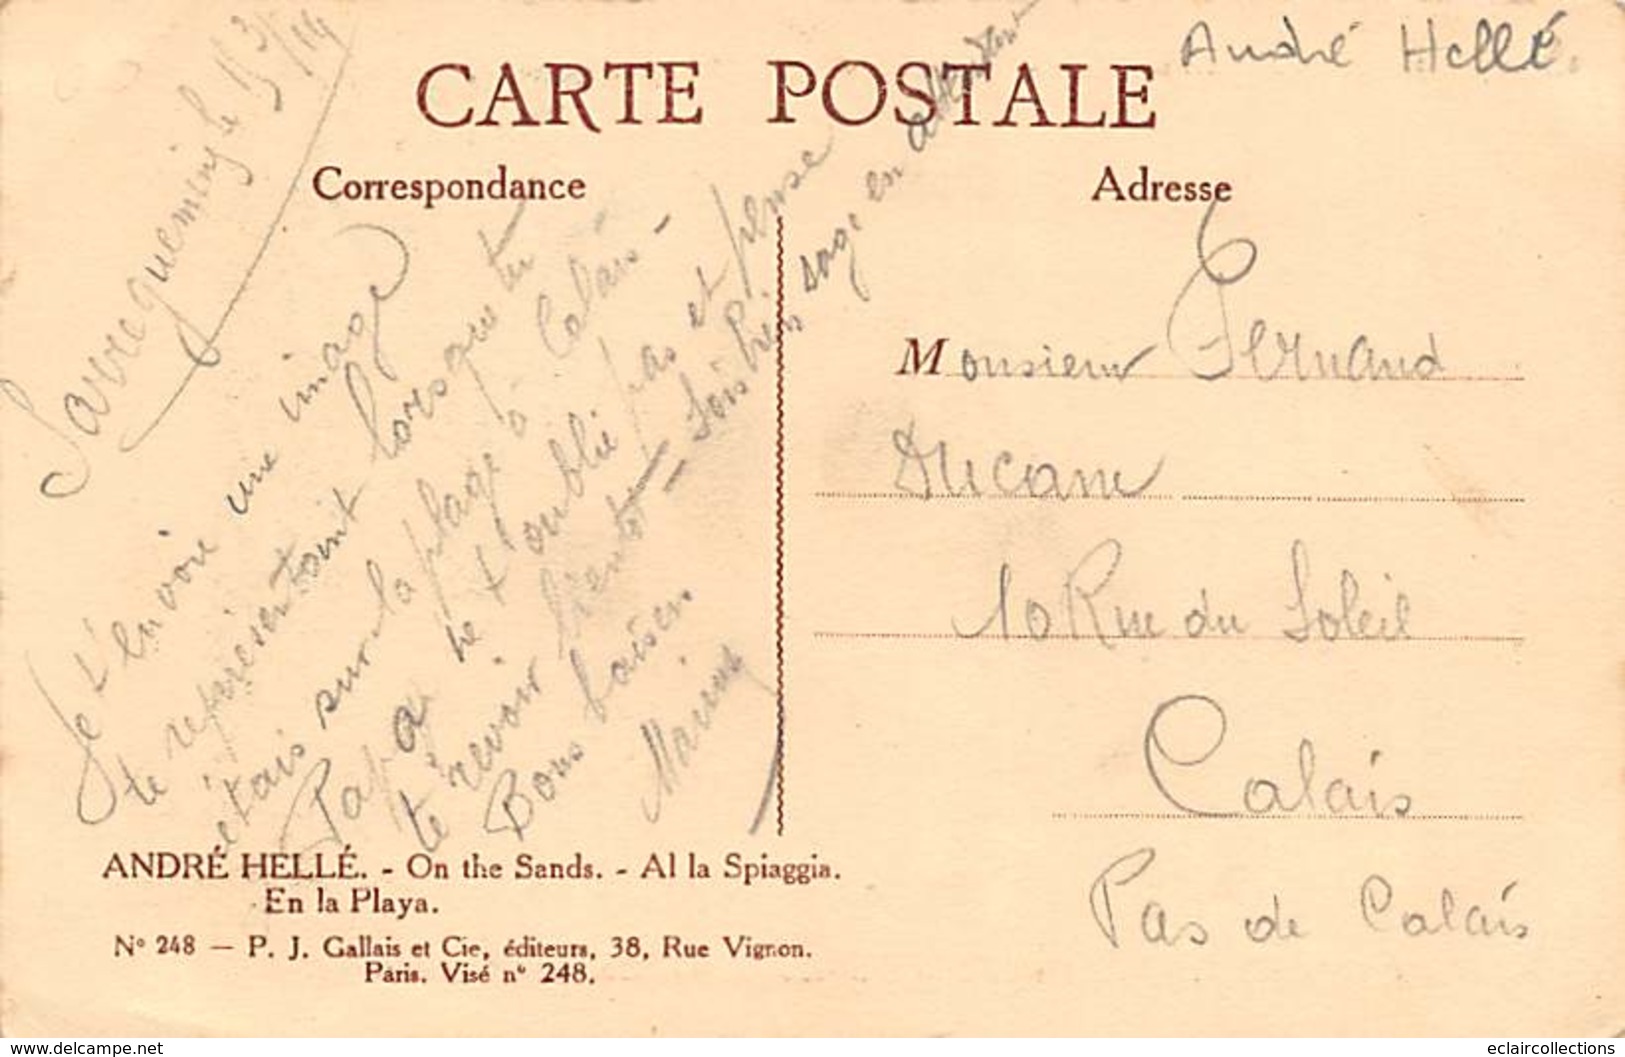 André Hellé
CARTE POSTALE
Correspondance
Adresse
Sarreguemines le 13/3/19
Je t'envoie une image
te representant lorsque tu
etais sur la plage à Calais -
Papa ne t'oublie pas et pense
te revoir bientot - Sois bien sage en attendant
Bons baisers
Monsieur Fernand
Ducam
10 Rue du Soleil
Calais
Pas de Calais
ANDRÉ HELLÉ. - On the Sands. - Al la Spiaggia.
En la Playa.
N° 248 — P. J. Gallais et Cie, éditeurs, 38, Rue Vignon.
Paris. Visé n° 248.
www.delcampe.net
eclaircollections